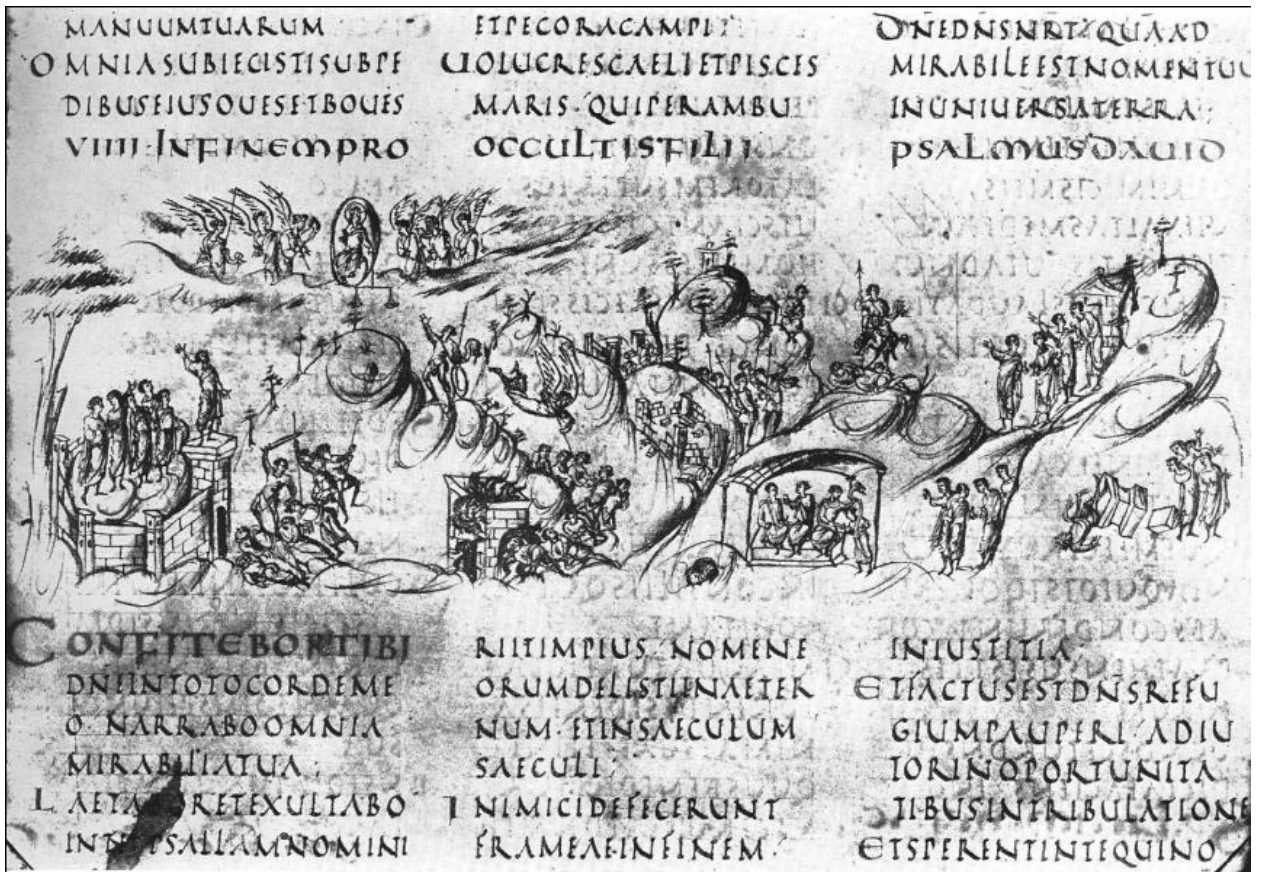 MANUUMTUARUM
OMNIASUBIECISTISUBPE
DIBUSEIUSOUESETBOUES
ETPECORACAMPI
UOLUCRESCAELIETPISCES
MARIS·QUIPERAMBU
DNEDNSNR QUAAD
MIRABILEESTNOMENTUU
INUNIUERSATERRA;
VIIII·INFINEMPRO OCCULTISFILII PSALMUSDAUID
CONFITEBORTIBI
DNEINTOTOCORDEME
O NARRABOOMNIA
MIRABILIATUA;
LAETABORETEXULTABO
INTEPSALLAMNOMINI
RIITIMPIUS·NOMENE
ORUMDELISTIINAETER
NUM·ETINSAECULUM
SAECULI;
INIMICIDEFECERUNT
FRAMEAEINFINEM·
INIUSTITIA;
ETFACTUSESTDNSREFU
GIUMPAUPERI·ADIU
TORINOPORTUNITA
TIBUSINTRIBULATIONE
ETSPERENTINTEQUINO